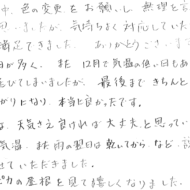 中、色の変更をお願いし無理を言
いましたが、気持ちよく対応していた
満足できました。ありがとうございま
日が多く、秋 12月で気温の低い日もあ
延びてしまいましたが、最後まできちんと
がりになり、本当に良かったです。
は、天気さえ良ければ大丈夫と思ってい
気温、秋雨の翌日は乾いてからなど、
せていただきました。
ピカの屋根を見て嬉しくなりました。